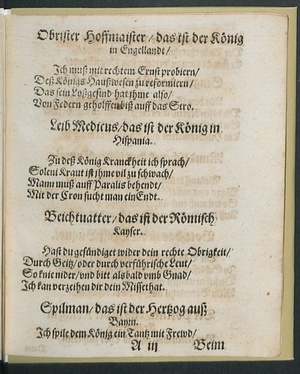 Obrister Hoffmaister / das ist der König
in Engellandt /
Ich muß mit rechtem Ernst probiern /
Deß Königs Haußwesen zu reformiern /
Das sein Loßgesind hat ihme also /
Von Federn geholffen biß auff das Stro.
Leib Medicus / das ist der König in
Hispania.
Zu deß König Kranckheit ich sprach /
Soleni Kraut ist ihme vil zu schwach /
Mann muß auff Paralis behendt /
Mit der Cron sucht man ein Endt.
Beichtuatter / das ist der Römisch
Kayser.
Hast du gesündiget wider dein rechte Obrigkeit /
Durch Geitz / oder durch verführische Leut /
So knie nider / vnd bitt alsbald vmb Gnad /
Ich kan verzeihen dir dein Missethat.
Spilman / das ist der Hertzog auß
Bayrn.
Ich spile dem König ein Tantz mit Frewd /
A iij Beim